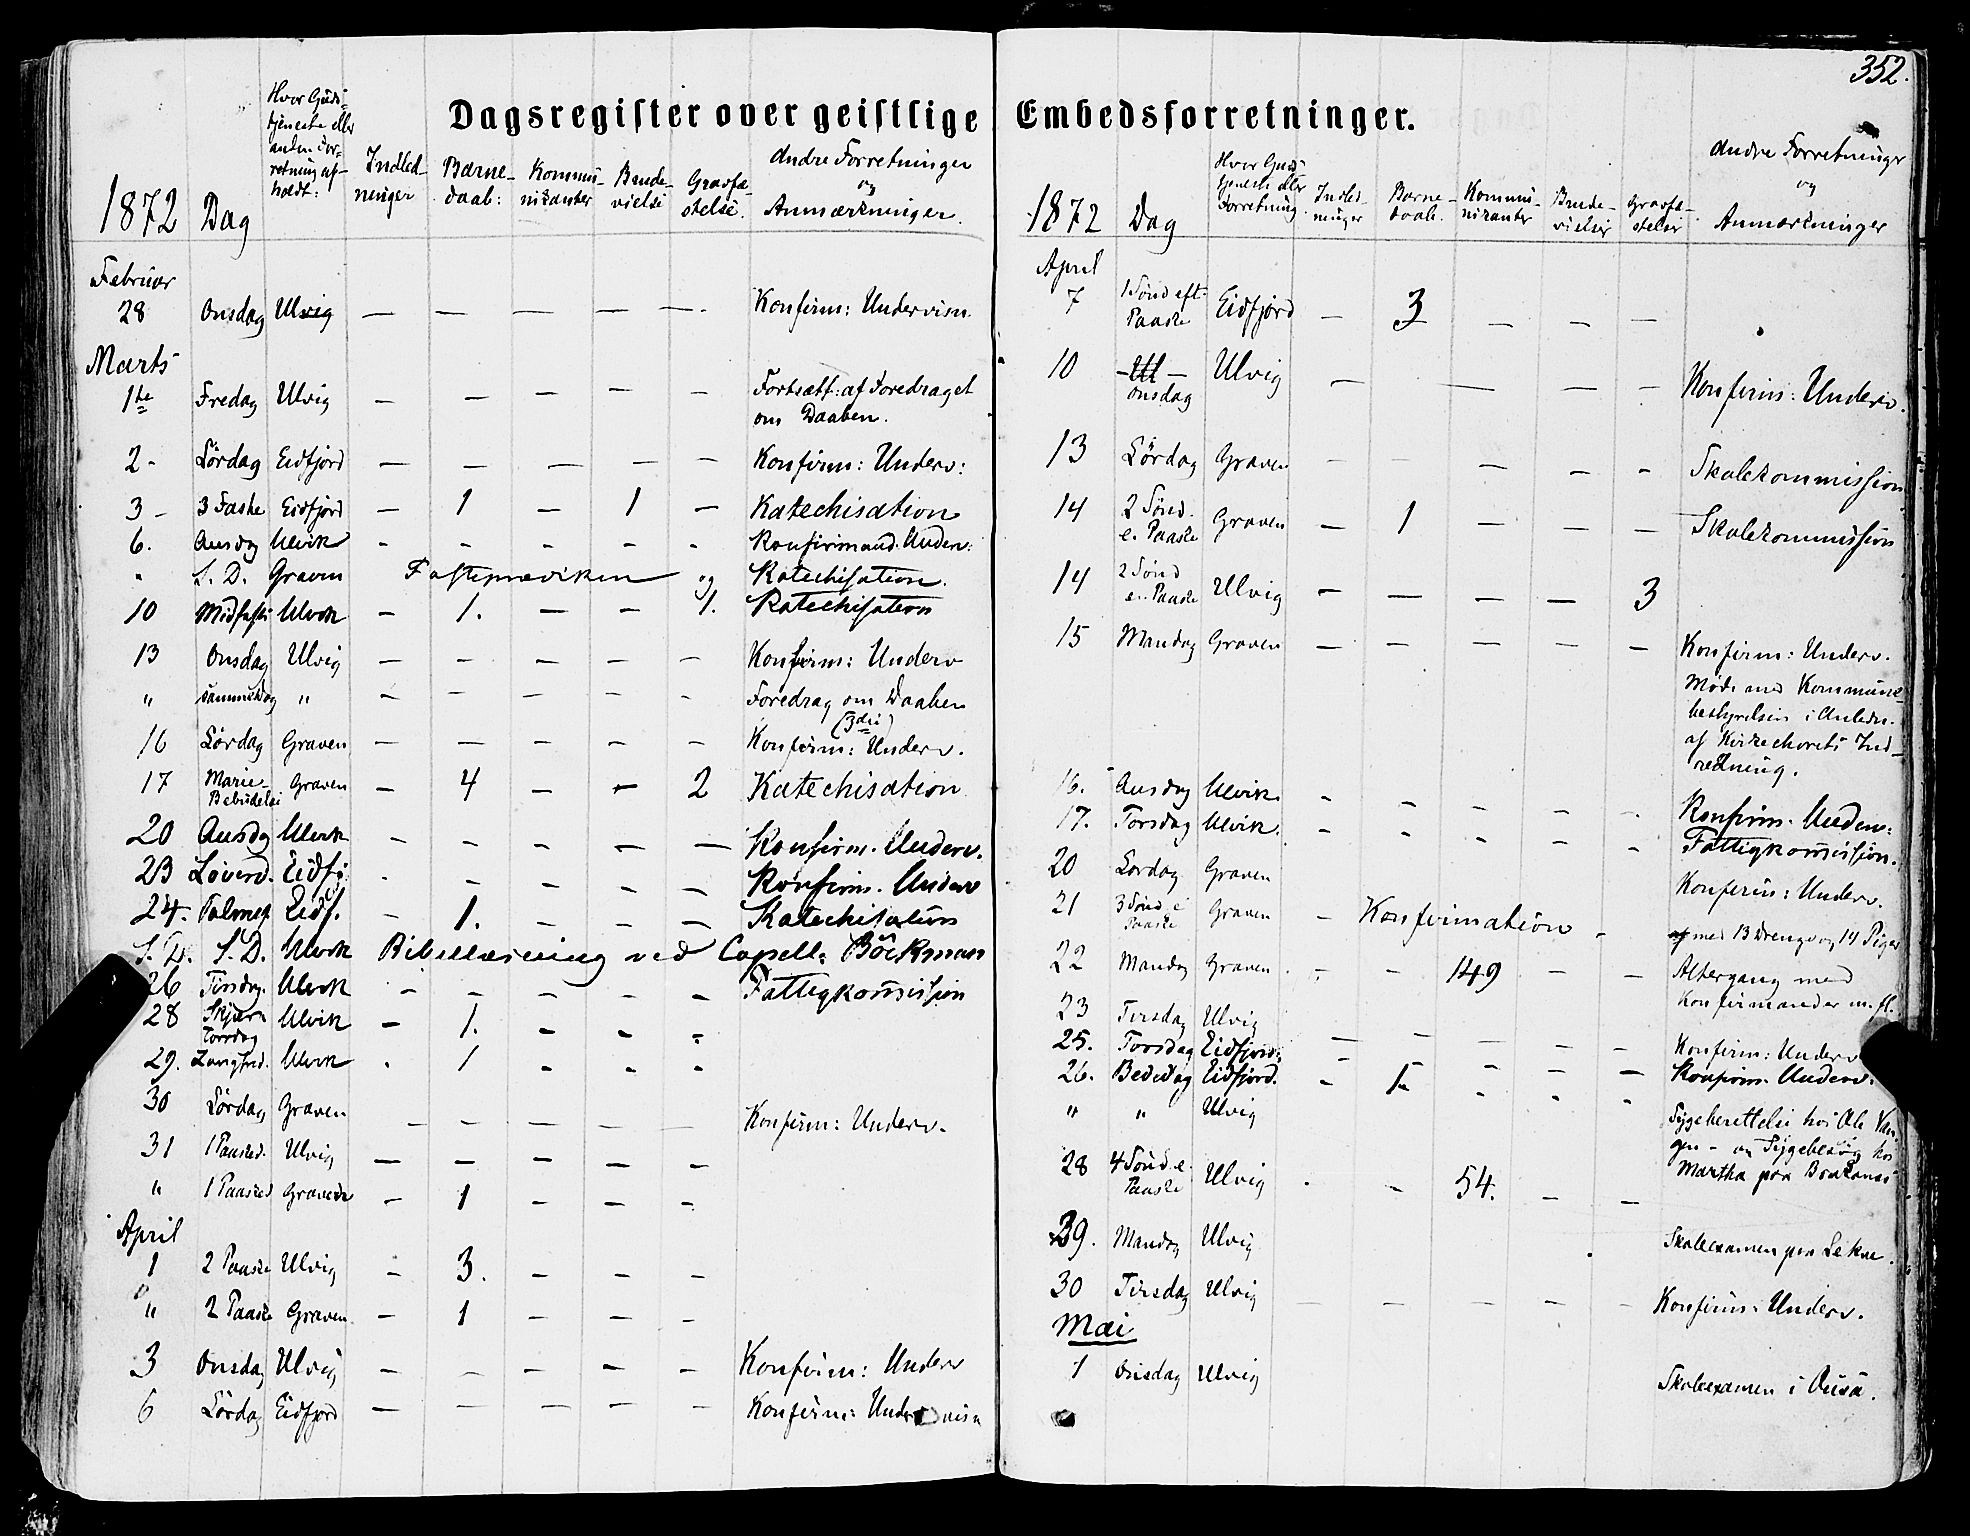 352.
Dagsregister over geistlige Embedsforretninger.
1872 Dag
Hvor Guds-
tjeneste eller
anden For-
retning af-
holdt:
Indled-
ninger
Barne-
daab:
Kommu-
nikanter
Brude-
vielse
Gravfæ-
stelse.
Andre Forretninger
og
Anmærkninger.
Februar
28 Onsdag Ulvig — — — — — Konfirm: Undervisn
Marts
1te Fredag Ulvig — — — — — Fortsætt: af Foredraget
om Daaben.
2 - Lördag Eidfjord — — — — — Konfirm: Underv:
3 - 3 Faste Eidfjord — 1 — 1 — Katechisation
6. Onsdag Ulvik - - - - - Konfirmand. Underv:
" S. D. Graven Fasteprædiken og Katechisation.
10 Midfaste Ulvik — 1. — — 1. Katechisation
13 Onsdag Ulvig — — — — — Konfirm: Underv
" sammedag " — — — — — Foredrag om Daaben
(3die)
16 Lördag Graven — — — — — Konfirm: Underv.
17 Marie-
Bebudelse Graven — 4 — — 2 Katechisation
20 Onsdag Ulvik - - - - — Konfirm. Underv.
23 Löverd. Eidfj. - - - - — Konfirm. Underv
24. Palmes. Eidf. - 1. - - — Katechisation
S. D. S. D. Ulvik Bibellæsning ved Capell: Böckman
26 Tirsdag. Ulvik - - - - — Fattigkomission
28 Skjær-
Torsdag Ulvik - 1. - - -
29. Langfred. Ulvik - 1 - - -
30 Lördag Graven — — — — — Konfirm: Underv.
31 1 Paasked. Ulvig — — — — —
" 1 Paasked Graven — 1 — — —
April
1 2 Paaske Ulvig — 3. — — —
" 2 Paaske Graven. — 1 — — —
3 Onsdag Ulvig — — — — — Konfirm: Underv
6 Lördag Eidfjord — — — — — Konfirm: Undervisn
1872 Dag
Hvor Guds
tjeneste eller
Forretning
Indled-
ninger
Barne-
daab.
Kommu-
nikanter
Brude-
vielser
Gravfæ-
stelser
Andre Forretninger
og
Anmærkninger
April
7 1 Sönd eft.
Paaske Eidfjord — 3 — — —
10 Onsdag Ulvig — — — — Konfirm: Underv.
13 Lördag Graven — — — — - Skolekommission
14 2 Sönd.
e. Paaske Graven — 1 — — — Skolekommission
14 2 Sönd
e. Paaske Ulvig — — — — 3
15 Mandag Graven — — — — — Konfirm: Underv.
Möde med Kommune-
bestyrelsen i Anledn.
af Kirkechorets Ind-
redning.
16. Onsdag Ulvik - - - - - Konfirm. Underv:
17. Torsdag Ulvik. - - - - - Fattigkomission.
20 Lördag Graven Konfirm: Underv.
21 3 Sönd e
Paaske Graven — Konfirmation - med 13 Drenge og 14 Piger
22 Mandag Graven - - 149 — — Altergang med
Konfirmander m. fl.
23 Tirsdag Ulvig — — — — — Konfirm: Underv
25. Torsdag Eidfjord. - - - - — Konfirm. Underv.
26. Bededag Eidfjord. - 1 - - -
" " Ulvig Sygeberettelse hos Ole Van-
gen - og Sygebesög hos
Martha paa Brakanes
28 4 Sönd. e.
Paaske Ulvig - - 54. — —
29. Mandag Ulvig Skoleexamen paa Lekve.
30 Tirsdag Ulvig — — — — — Konfirm: Underv.
Mai
1 Onsdag Ulvig Skoleexamen i Ousa.